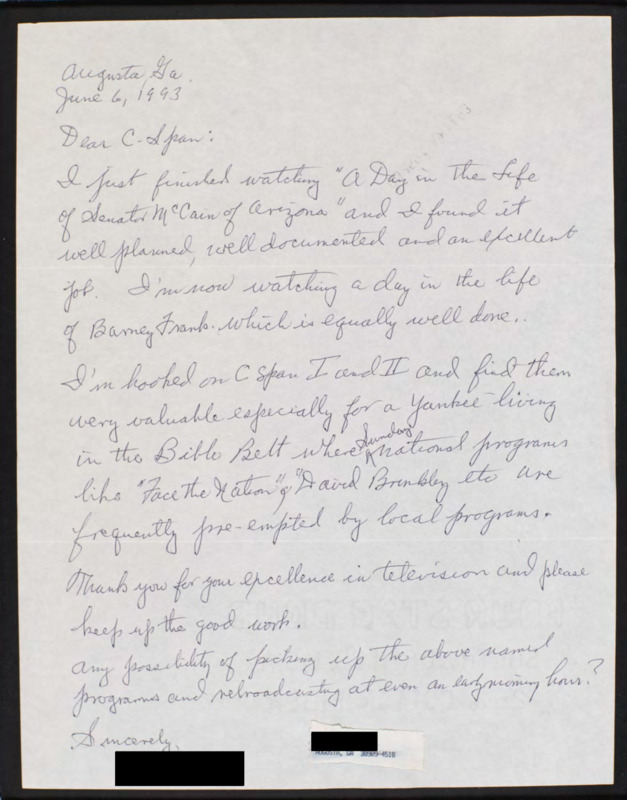 Augusta, Ga.
June 6, 1993
Dear C-Span:
I just finished watching "A Day in the Life
of Senator McCain of Arizona" and I found it
well planned, well documented and an excellent
job. I'm now watching a day in the life
of Barney Frank. which is equally well done..
I'm hooked on C Span I and II and find them
very valuable especially for a Yankee living
in the Bible Belt where Sunday national programs
like "Face the Nation" & "David Brinkley etc are
frequently pre-empted by local programs.
Thank you for your excellence in television and please
keep up the good work.
Any possibility of picking up the above named
programs and rebroadcasting at even an early morning hour?
Sincerely,
AUGUSTA, GA 30909-4518